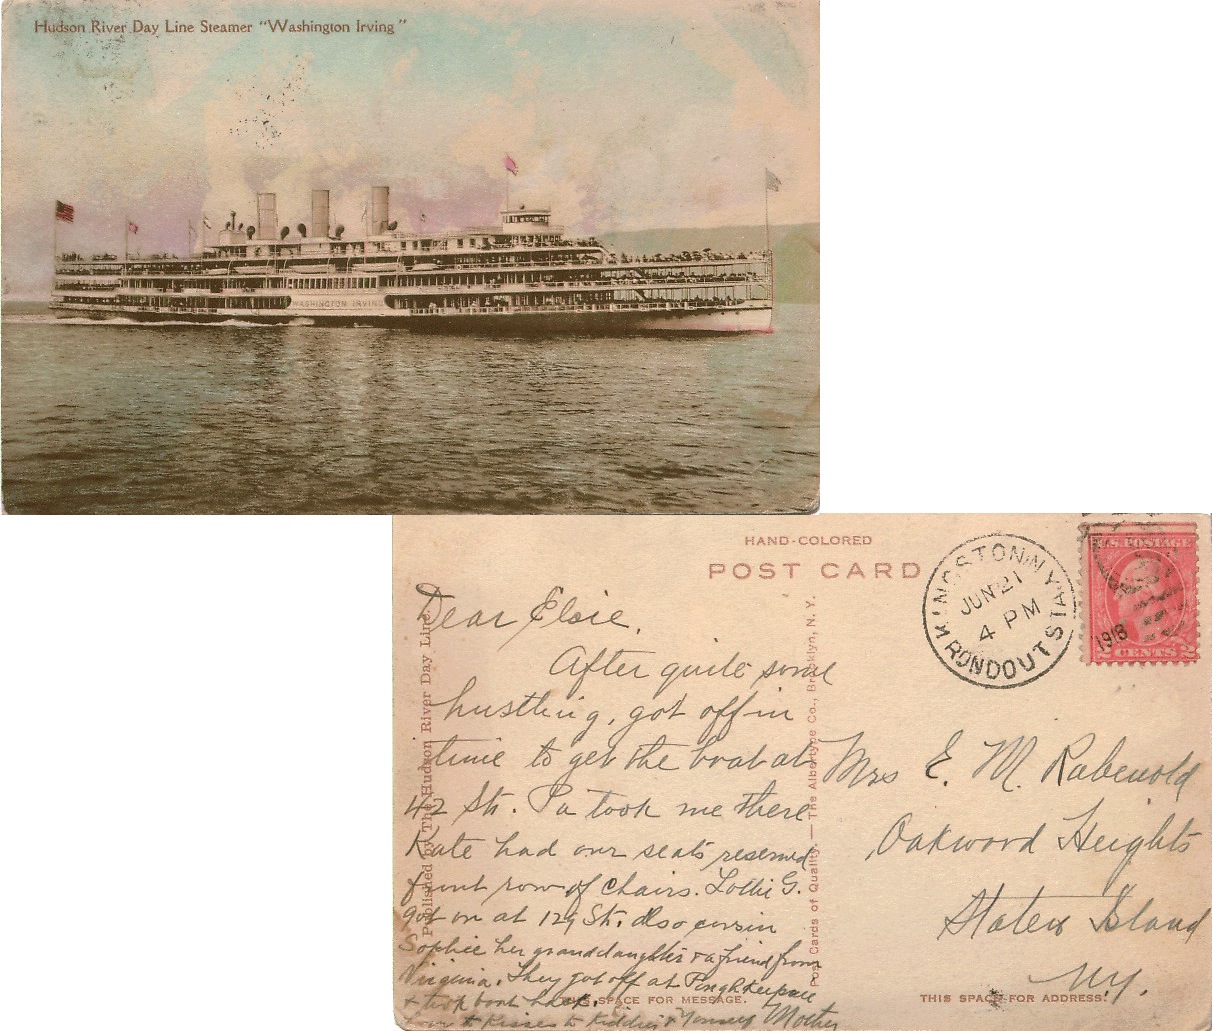 Hudson River Day Line Steamer "Washington Irving"
WASHINGTON IRVING
HAND-COLORED
POST CARD
KINGSTON N.Y.
JUN 21
4 PM
RONDOUT STA.
1918
U.S. POSTAGE
2 CENTS 2
Dear Elsie,
After quite some
hustling, got off in
time to get the boat at
42 St. Pa took me there
Kate had our seats reserved
front row of chairs. Lottie G.
got on at 129 St. also cousin
Sophie her granddaughter & a friend from
Virginia. They got off at Poughkeepsie
& took boat back.
Love & Kisses to Kiddies & Yourself Mother
Mrs E. M. Rabenold
Oakwood Heights
Staten Island
N.Y.
Published by The Hudson River Day Line.
Post Cards of Quality. — The Albertype Co., Brooklyn, N. Y.
THIS SPACE FOR MESSAGE.
THIS SPACE FOR ADDRESS.